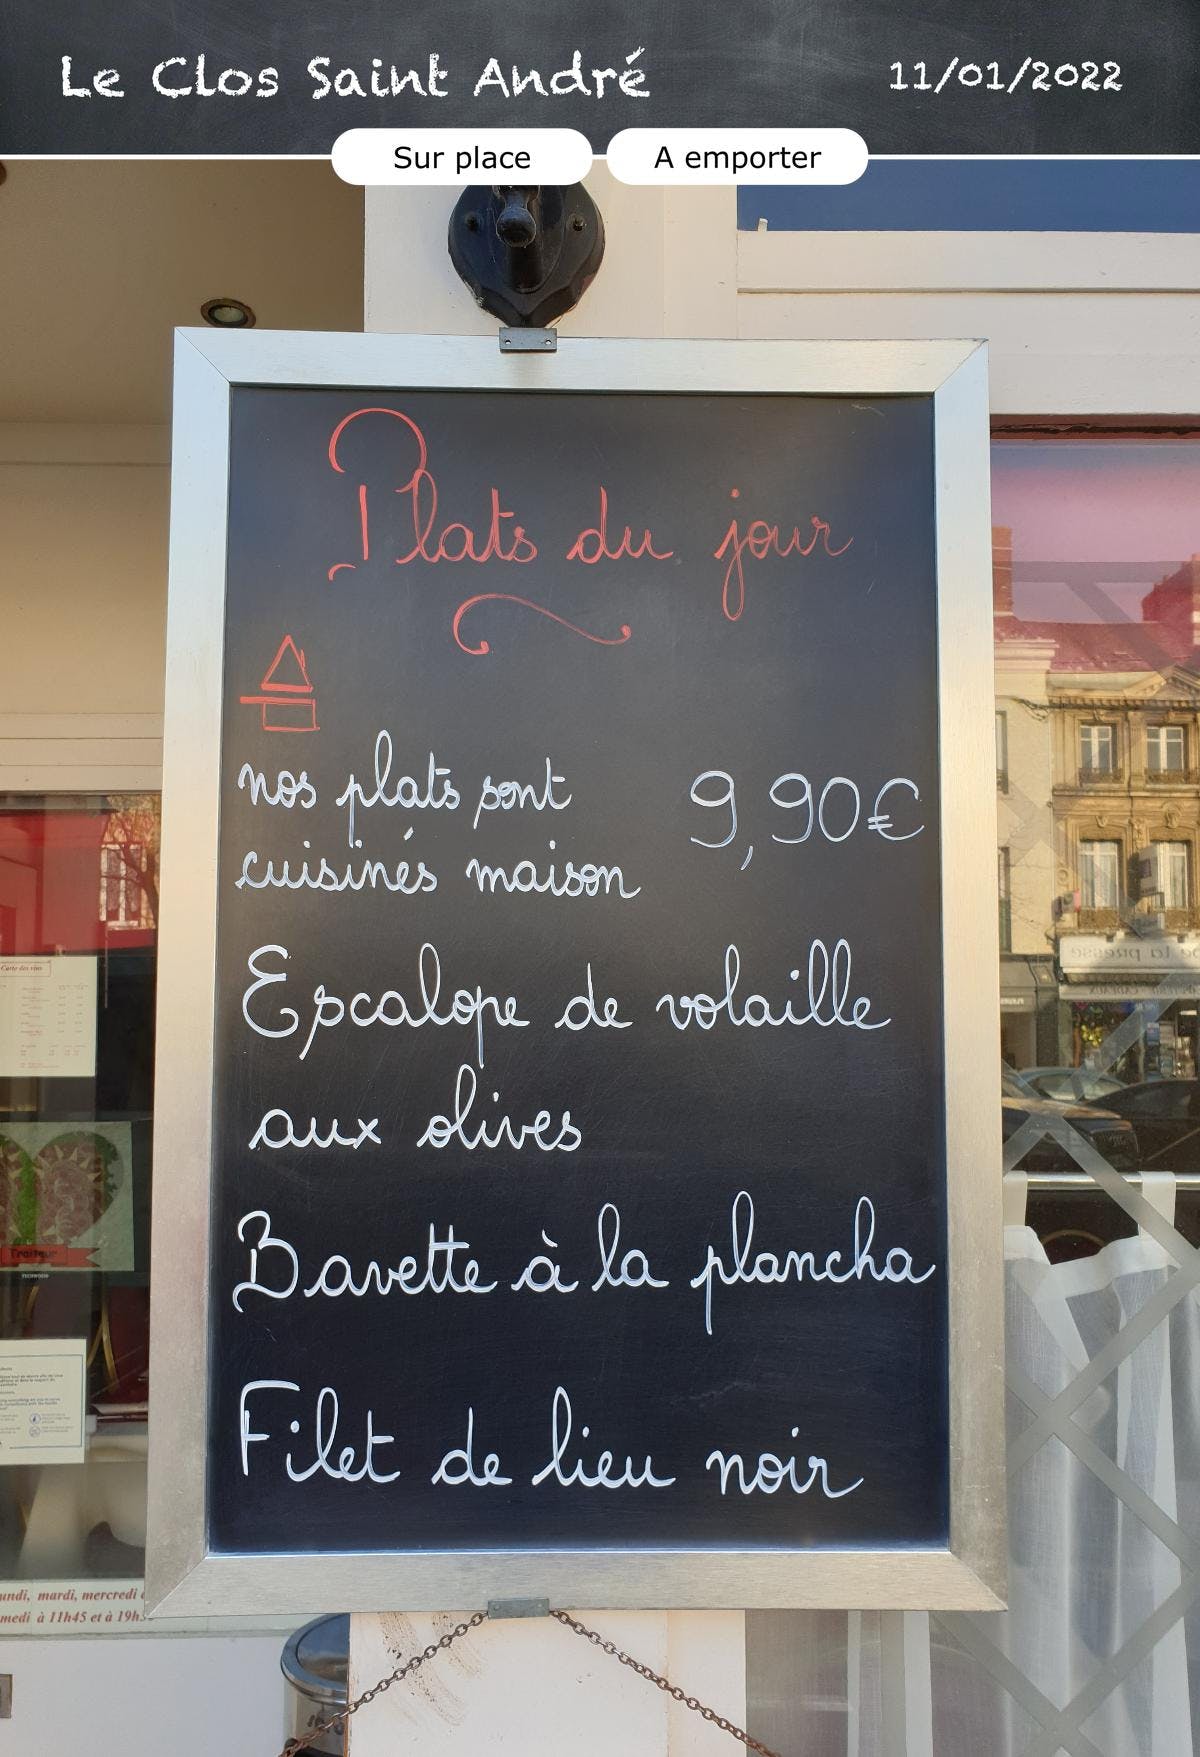 Le Clos Saint André
11/01/2022
Sur place
A emporter
Plats du jour
nos plats sont
cuisinés maison
9,90€
Escalope de volaille
aux olives
Bavette à la plancha
Filet de lieu noir
Carte des vins
Traiteur
undi, mardi, mercredi
medi à 11h45 et à 19h
la presse
CADEAUX